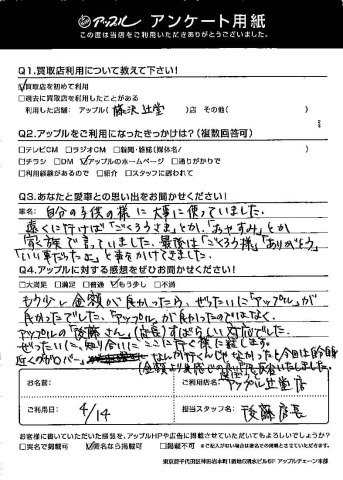 アップル アンケート用紙
この度は当店をご利用いただきありがとうございました。
Q1.買取店利用について教えて下さい!
☑買取店を初めて利用
□過去に買取店を利用したことがある
利用した店舗: アップル( 藤沢辻堂 )店 その他( )
Q2.アップルをご利用になったきっかけは?(複数回答可)
□テレビCM □ラジオCM □新聞・雑誌(媒体名/ )
□チラシ □DM ☑アップルのホームページ □通りがかりで
□利用経験があるので □紹介 □スタッフに誘われて
Q3.あなたと愛車との思い出をお聞かせください!
車名: 自分の子供の様に大事に使っていました。
遠くに行けば「ごくろうさま」とか、「おやすみ」とか
家族で言っていました。最後は「ごくろう様」「ありがとう」
「いい車だったよ」と声をかけてきました。
Q4.アップルに対する感想をぜひお聞かせください!
□大満足 □満足 □普通 ☑もう少し □不満
もう少し金額が良かったら、ぜったいに「アップル」が
良かったでした。「アップル」が良かったのではなく、
アップルの「後藤さん」(店長)すばらしい対応でした。
ぜったいに、知り合いにここに行く様に話します。
近くのガリバー
お名前:
ご利用店名: アップル辻堂店
ご利用日: 4/14
担当スタッフ名: 後藤店長
お客様に書いていただいた感想を、アップルHPや広告に掲載させていただいてもよろしいでしょうか?
□実名で掲載可 ☑匿名なら掲載可
東京都千代田区神田岩本町1番地6清水ビル6F アップルチェーン本部